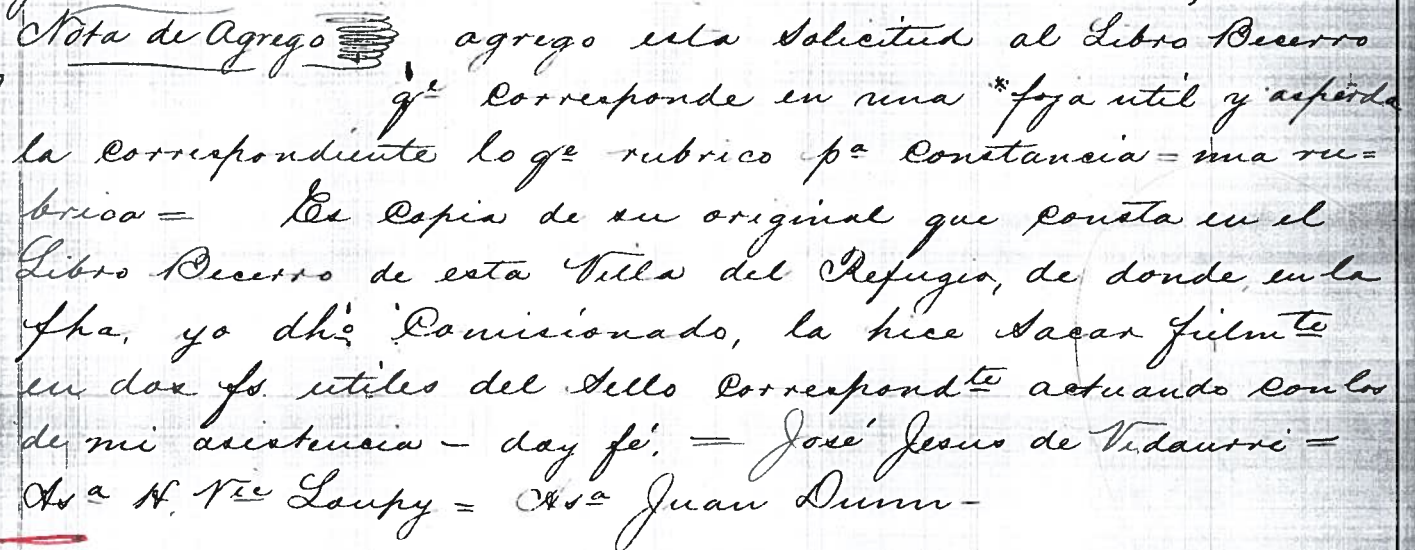 Nota de Agrego agrego esta Solicitud al Libro Becerro
qe Corresponde en una *foja util y asperda
la Correspondiente lo qe rubrico pa Constancia = una ru=
brica = Es Copia de su original que consta en el
Libro Becerro de esta Villa del Refugio, de donde en la
fha, yo dho Comisionado, la hice Sacar fielmte
en dos fs. utiles del Sello Correspondte actuando con los
de mi asistencia - doy fé. = José Jesus de Vidaurri =
Asa H. Vte Loupy = Asa Juan Dunn -